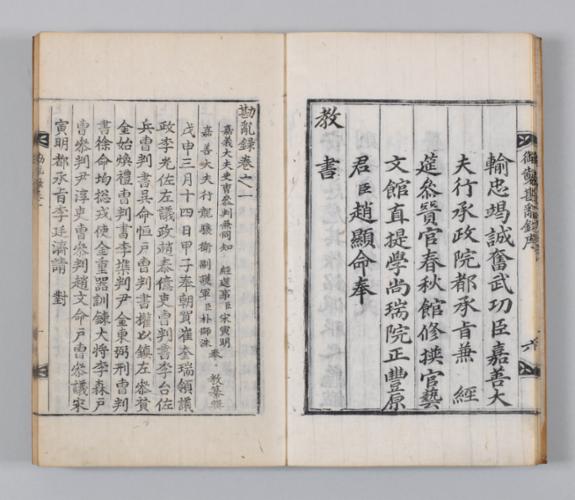 御製勘亂錄序
輸忠竭誠奮武功臣嘉善大
夫行承政院都承旨兼 經
筵參贊官春秋館修撰官藝
文館直提學尙瑞院正豐原
君臣趙顯命奉
教書
六
勘亂錄卷之一
嘉義大夫吏曹參判兼同知 經筵事臣宋寅明
嘉善大夫行龍驤衛副護軍臣朴師洙 奉 教纂輯
戊申三月十四日甲子奉朝賀崔奎瑞領議
政李光佐左議政趙泰億吏曹判書李台佐
兵曹判書吳命恒戶曹判書權以鎭左參贊
金始煥禮曹判書李㙫判尹金東弼刑曹判
書徐命均摠戎使金重器訓鍊大將李森戶
曹參判尹淳吏曹參判趙文命戶曹參議宋
寅明都承旨李廷濟請 對
勘亂錄卷之一
一